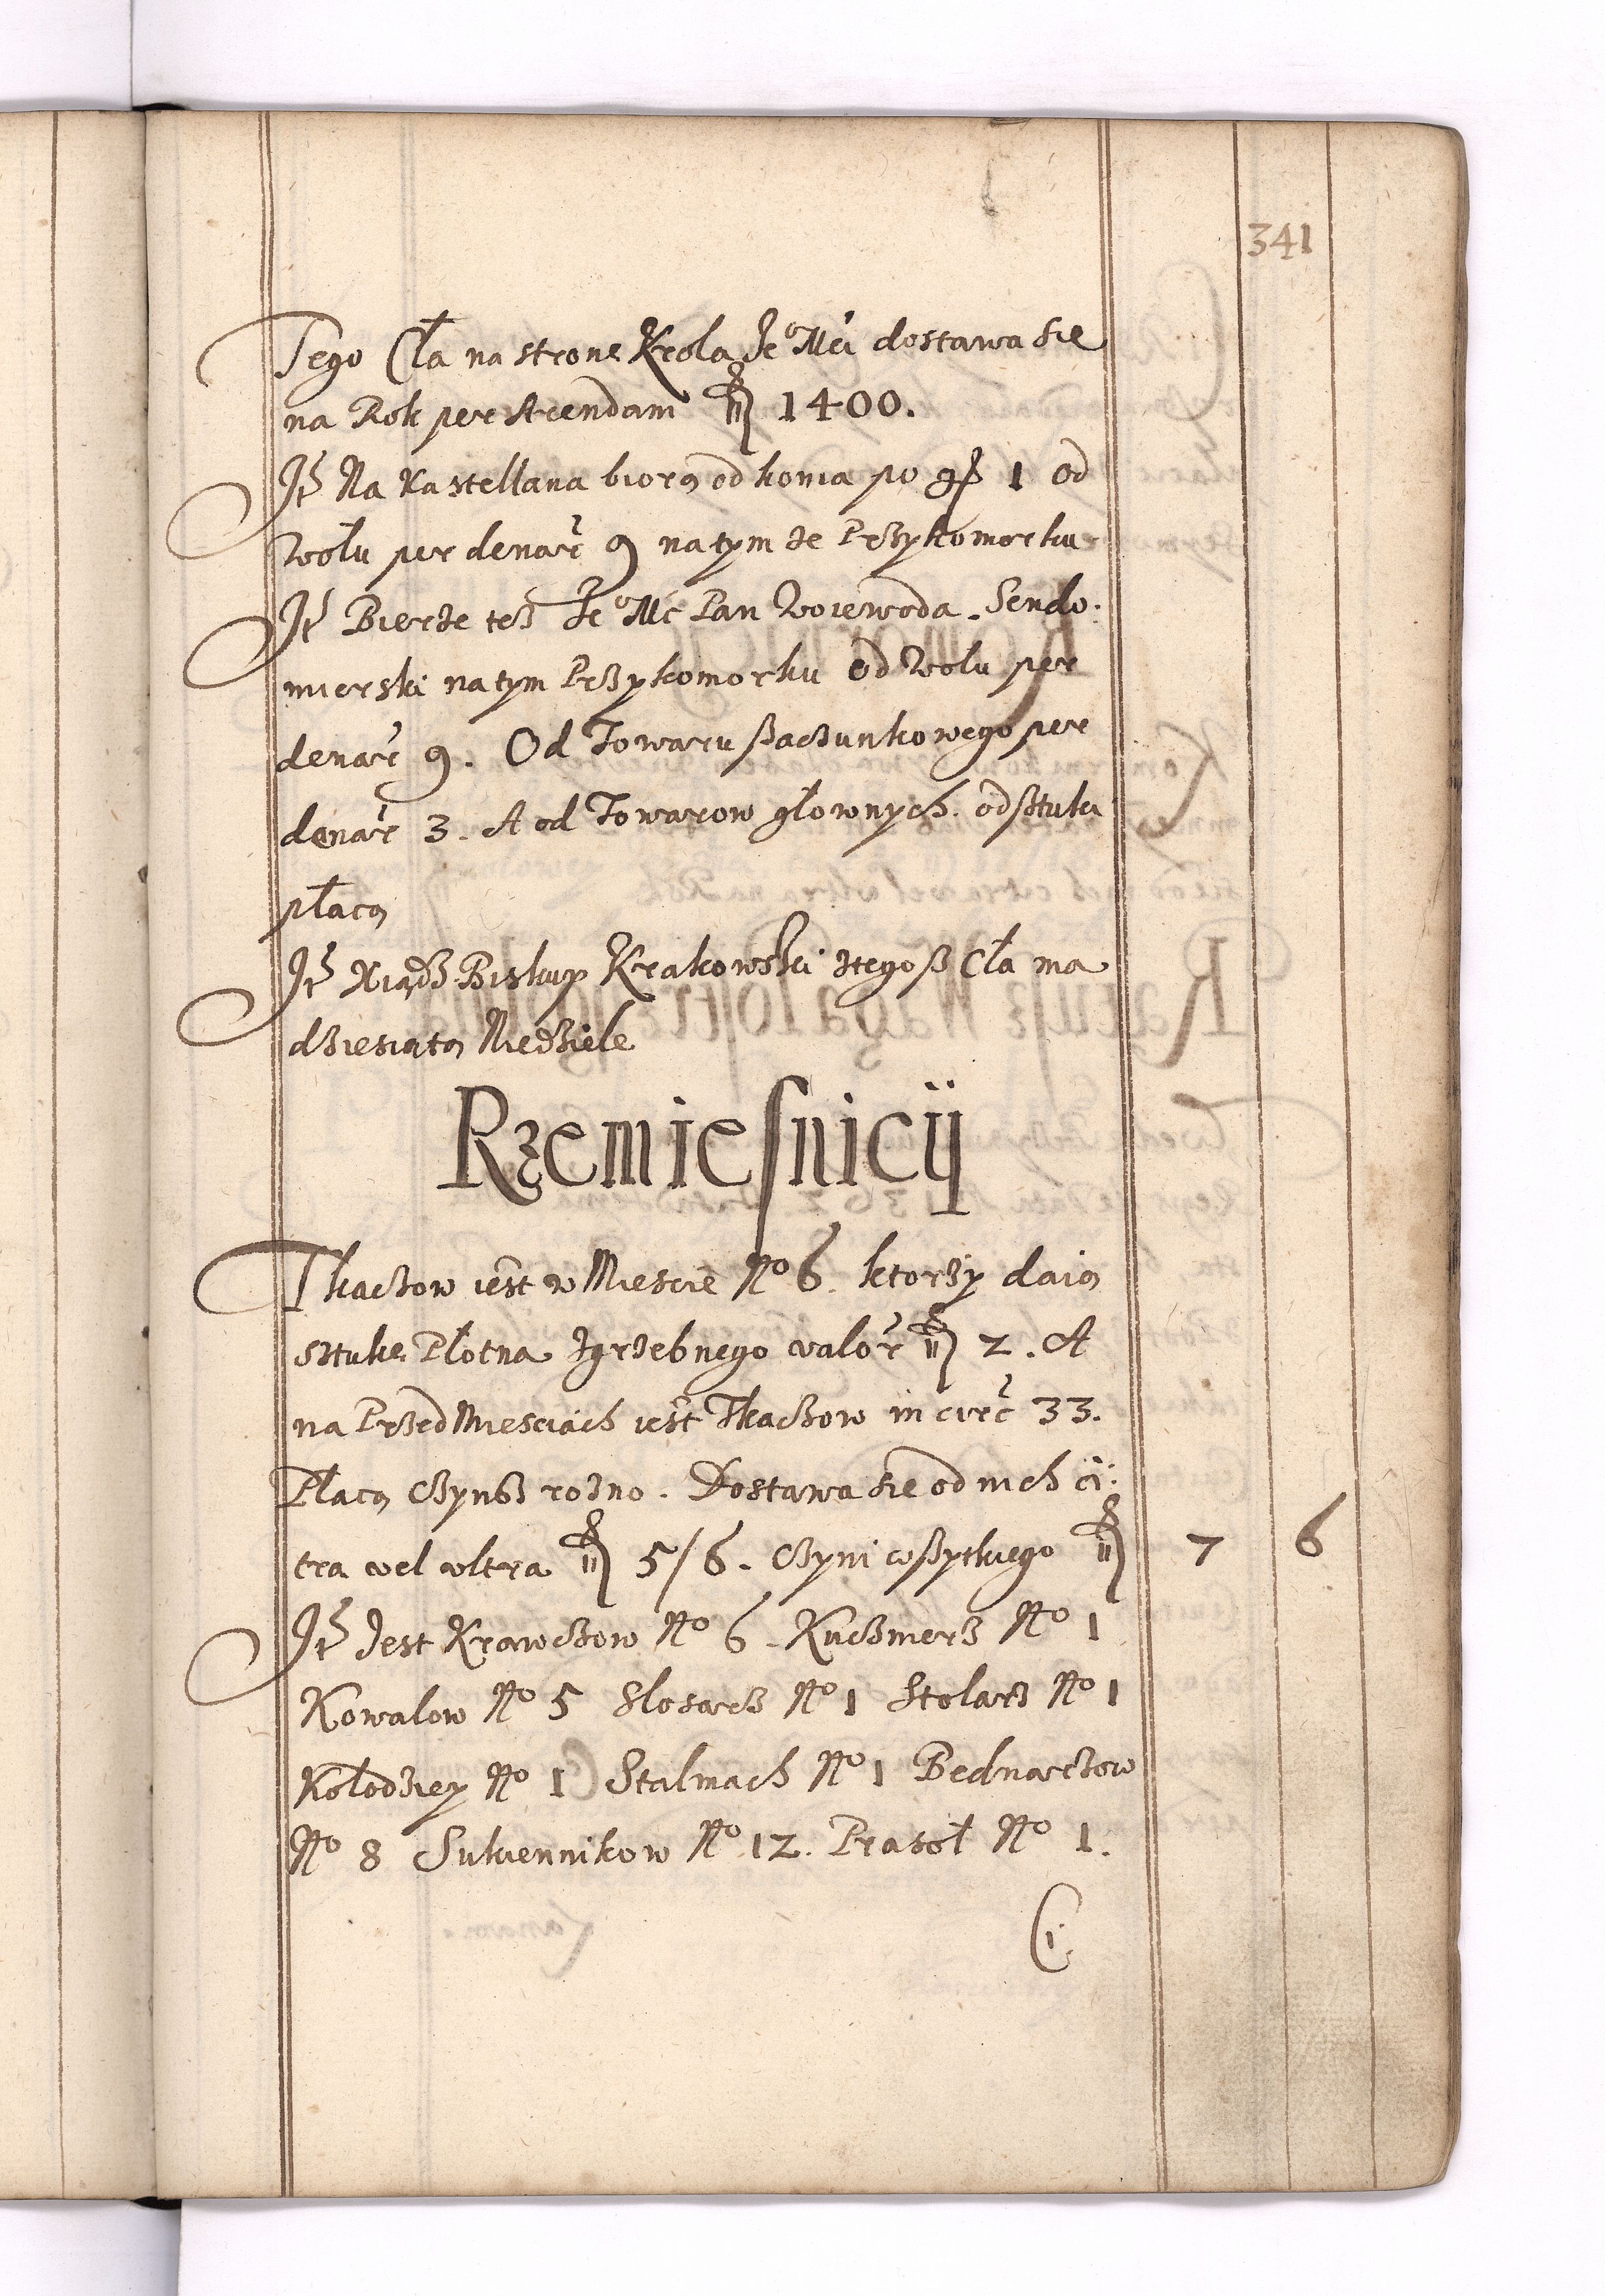 341
Tego Cła na strone Krola Je⁰ Mci dostawa sie
na Rok per Arendam fl 1400.
Jt Na Kastellana biorą od konia po gr 1 od
Wołu per denar 9 na tym ze Przykomorku
Jt Bierze tesz Je⁰ Mc Pan Woiewoda Sendo:
mierski na tym Przykomorku od Wołu per
denar 9. Od Towaru szaczunkowego per
denar 3. A od Towarow głownych od sztuki
płacą
Jt Xiądz Biskup Krakowski ztegosz Cła ma
dziesiątą Niedziele
Rzemiesnicy
Tkaczow iest w Miescie No 6. ktorzy daią
sztuke Płotna Zgrzebnego valor fl 2. A
na Przed Miesciach iest Tkaczow in circ 33.
Płacą Czynsz rozno. Dostawa sie od nich ci:
tra vel ultra fl 5/6. Czyni wszytkiego fl 7 6
Jt Jest Krawczow No 6. Kuśnierz No 1
Kowalow No 5 Slosarz No 1 Stolarz No 1
Kołodziey No 1 Stalmach No 1 Bednarzow
No 8 Sukiennikow No 12. Prasoł No 1.
Ci: